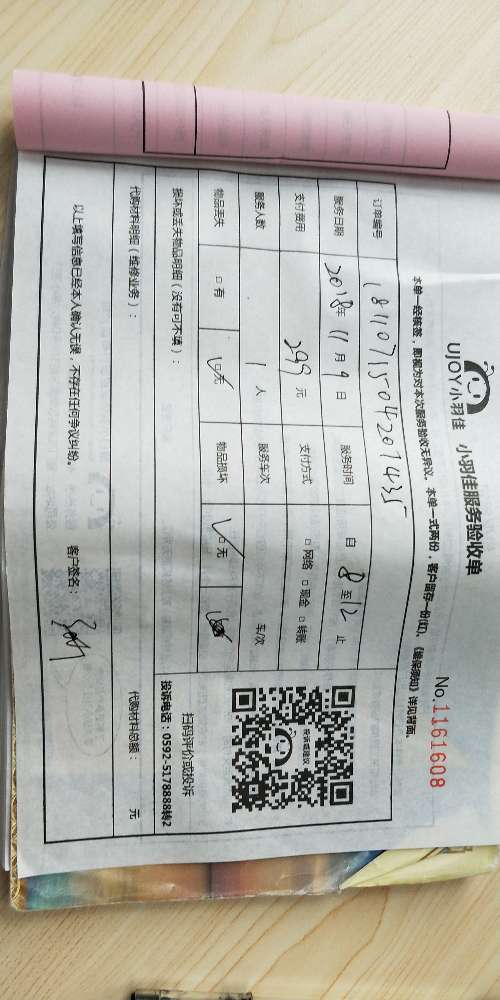 UJOY小羽佳 小羽佳服务验收单
No.1161608
本单一经核签，即视为对本次服务验收无异议。本单一式两份，客户留存一份(红)，《维保须知》详见背面。
订单编号 1811071504207435
服务日期 2018年 11月 9日 服务时间 自 8 至 12 止
支付费用 299 元 支付方式 □网络 □现金 □转账
服务人数 1 人 服务车次 车/次
物品丢失 □有 ☑无 物品损坏 ☑无
损坏或丢失物品明细（没有可不填）：
扫码评价或投诉
投诉电话：0592-5178888转2
代购材料明细（维修业务）： 代购材料总额： 元
以上填写信息已经本人确认无误，不存在任何争议纠纷。 客户签名：